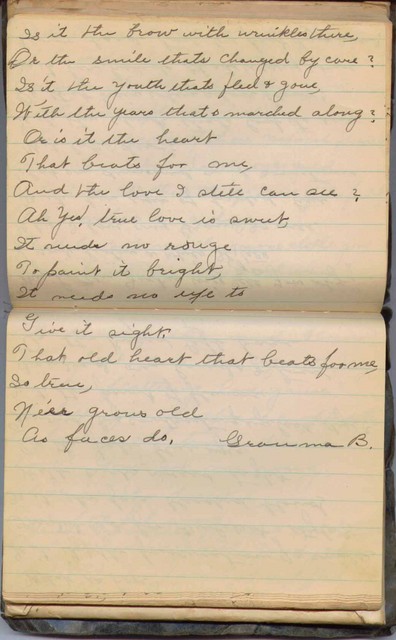 Is it the brow with wrinkles there,
Or the smile thats changed by care?
Is't the youth thats fled & gone,
With the years thats marched along?
Or is it the heart
That beats for me,
And the love I still can see?
Ah Yes, true love is sweet,
It needs no rouge
To paint it bright,
It needs no to
Give it sight.
That old heart that beats for me,
Is true,
Ne'er grows old
As faces do. Granma B.